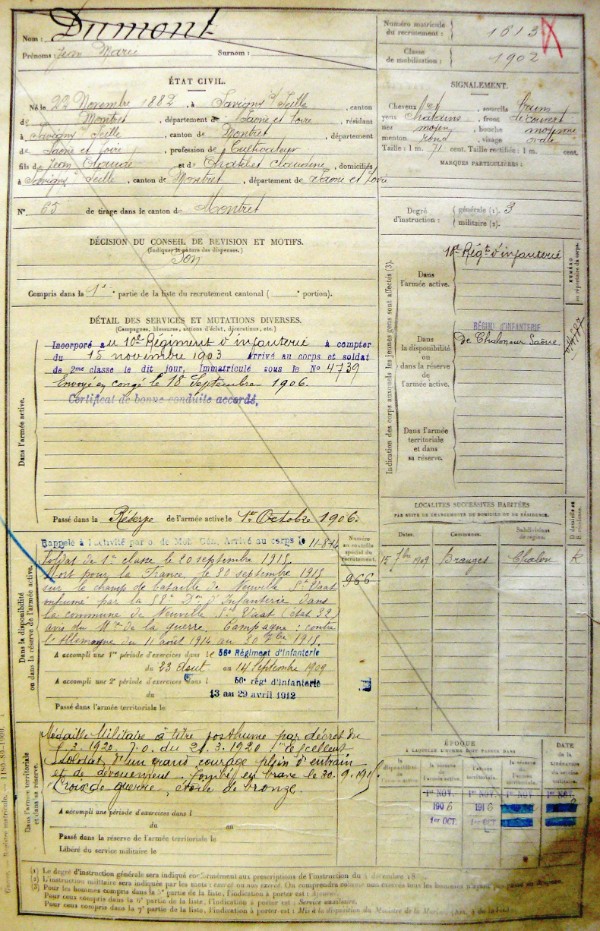 Nom : Dumont
Prénoms : Jean Marie Surnom :
Numéro matricule du recrutement : 1613
Classe de mobilisation : 1902
ÉTAT CIVIL.
Né le 22 Novembre 1882, à Savigny s/ Seille, canton
de Montret, département de Saône et Loire, résidant
à Savigny s/ Seille, canton de Montret, département
de Saône et Loire, profession de Cultivateur
fils de Jean Claude et de Chatelet Claudine, domiciliés
à Savigny s/ Seille, canton de Montret, département de Saône et Loire
N° 65 de tirage dans le canton de Montret
SIGNALEMENT.
Cheveux sourcils brun
yeux châtains, front découvert
nez moyen, bouche moyenne
menton rond, visage ovale
Taille : 1 m. 71 cent. Taille rectifiée : 1 m. cent.
MARQUES PARTICULIÈRES :
Degré d'instruction : générale (1). 3
militaire (2).
DÉCISION DU CONSEIL DE REVISION ET MOTIFS.
(Indiquer la nature des dispenses.)
Bon
Compris dans la 1re partie de la liste du recrutement cantonal ( portion).
DÉTAIL DES SERVICES ET MUTATIONS DIVERSES.
(Campagnes, blessures, actions d'éclat, décorations, etc.)
Dans l'armée active.
Incorporé au 10e Régiment d'infanterie à compter
du 15 novembre 1903 Arrivé au corps et soldat
de 2me classe le dit jour, Immatriculé sous le No 4739
Envoyé en congé le 18 Septembre 1906.
Certificat de bonne conduite accordé,
Passé dans la Réserve de l'armée active le 1er Octobre 1906.
Indication des corps auxquels les jeunes gens sont affectés (3).
Dans l'armée active.
10e Régt d'infanterie
Dans la disponibilité ou dans la réserve de l'armée active.
RÉGIMt D'INFANTERIE
de Chalon sur Saône
Dans l'armée territoriale et dans sa réserve.
Dans la disponibilité ou dans la réserve de l'armée active.
Rappelé à l'activité par o. de Mob. Gén. Arrivé au corps le 11-8-14
Soldat de 1re classe le 20 septembre 1915
Mort pour la France le 30 septembre 1915
sur le champ de bataille de Neuville St Vaast
inhumé par la Don d'Infanterie dans
la commune de Neuville St Vaast
avis du Mre de la guerre. Campagne : contre
l'Allemagne du 11 août 1914 au 30 7bre 1915.
Numéro au contrôle spécial du recrutement
966
A accompli une 1re période d'exercices dans le 56e Régiment d'Infanterie
du 23 Août au 14 Septembre 1909
A accompli une 2e période d'exercices dans le régt d'infanterie
13 au 29 avril 1912
Passé dans l'armée territoriale le
LOCALITÉS SUCCESSIVES HABITÉES
PAR SUITE DE CHANGEMENTS DE DOMICILE OU DE RÉSIDENCE.
Dates. Communes. Subdivisions de région.
15 7bre 1909 Branges Chalon R
Dans l'armée territoriale et dans sa réserve.
Médaille Militaire à titre posthume par décret du
1920. J.O. du 21.3.1920 "Excellent
soldat, d'un grand courage plein d'entrain
et de dévouement. Tombé en brave le 30.9.1915."
Croix de guerre, étoile de bronze.
A accompli une période d'exercices dans l
du au
Passé dans la réserve de l'armée territoriale le
Libéré du service militaire le
ÉPOQUE
À LAQUELLE L'HOMME DOIT PASSER DANS
la disponibilité de l'armée active.
l'armée territoriale.
DATE de la libération du service militaire.
1er NOV. 1er NOV. 1er NOV. 1er NOV.
1906 1916
1er OCT. 1er OCT.
(1) Le degré d'instruction générale sera indiqué conformément aux prescriptions de l'instruction du
(2) L'instruction militaire sera indiquée par les mots : exercé ou non exercé.
(3) Pour les hommes compris dans la 5e partie de la liste, l'indication à porter est :
Pour ceux compris dans la 6e partie de la liste, l'indication à porter est : Service auxiliaire.
Pour ceux compris dans la 7e partie de la liste, l'indication à porter est : Mis à la disposition du Ministre de la Marine